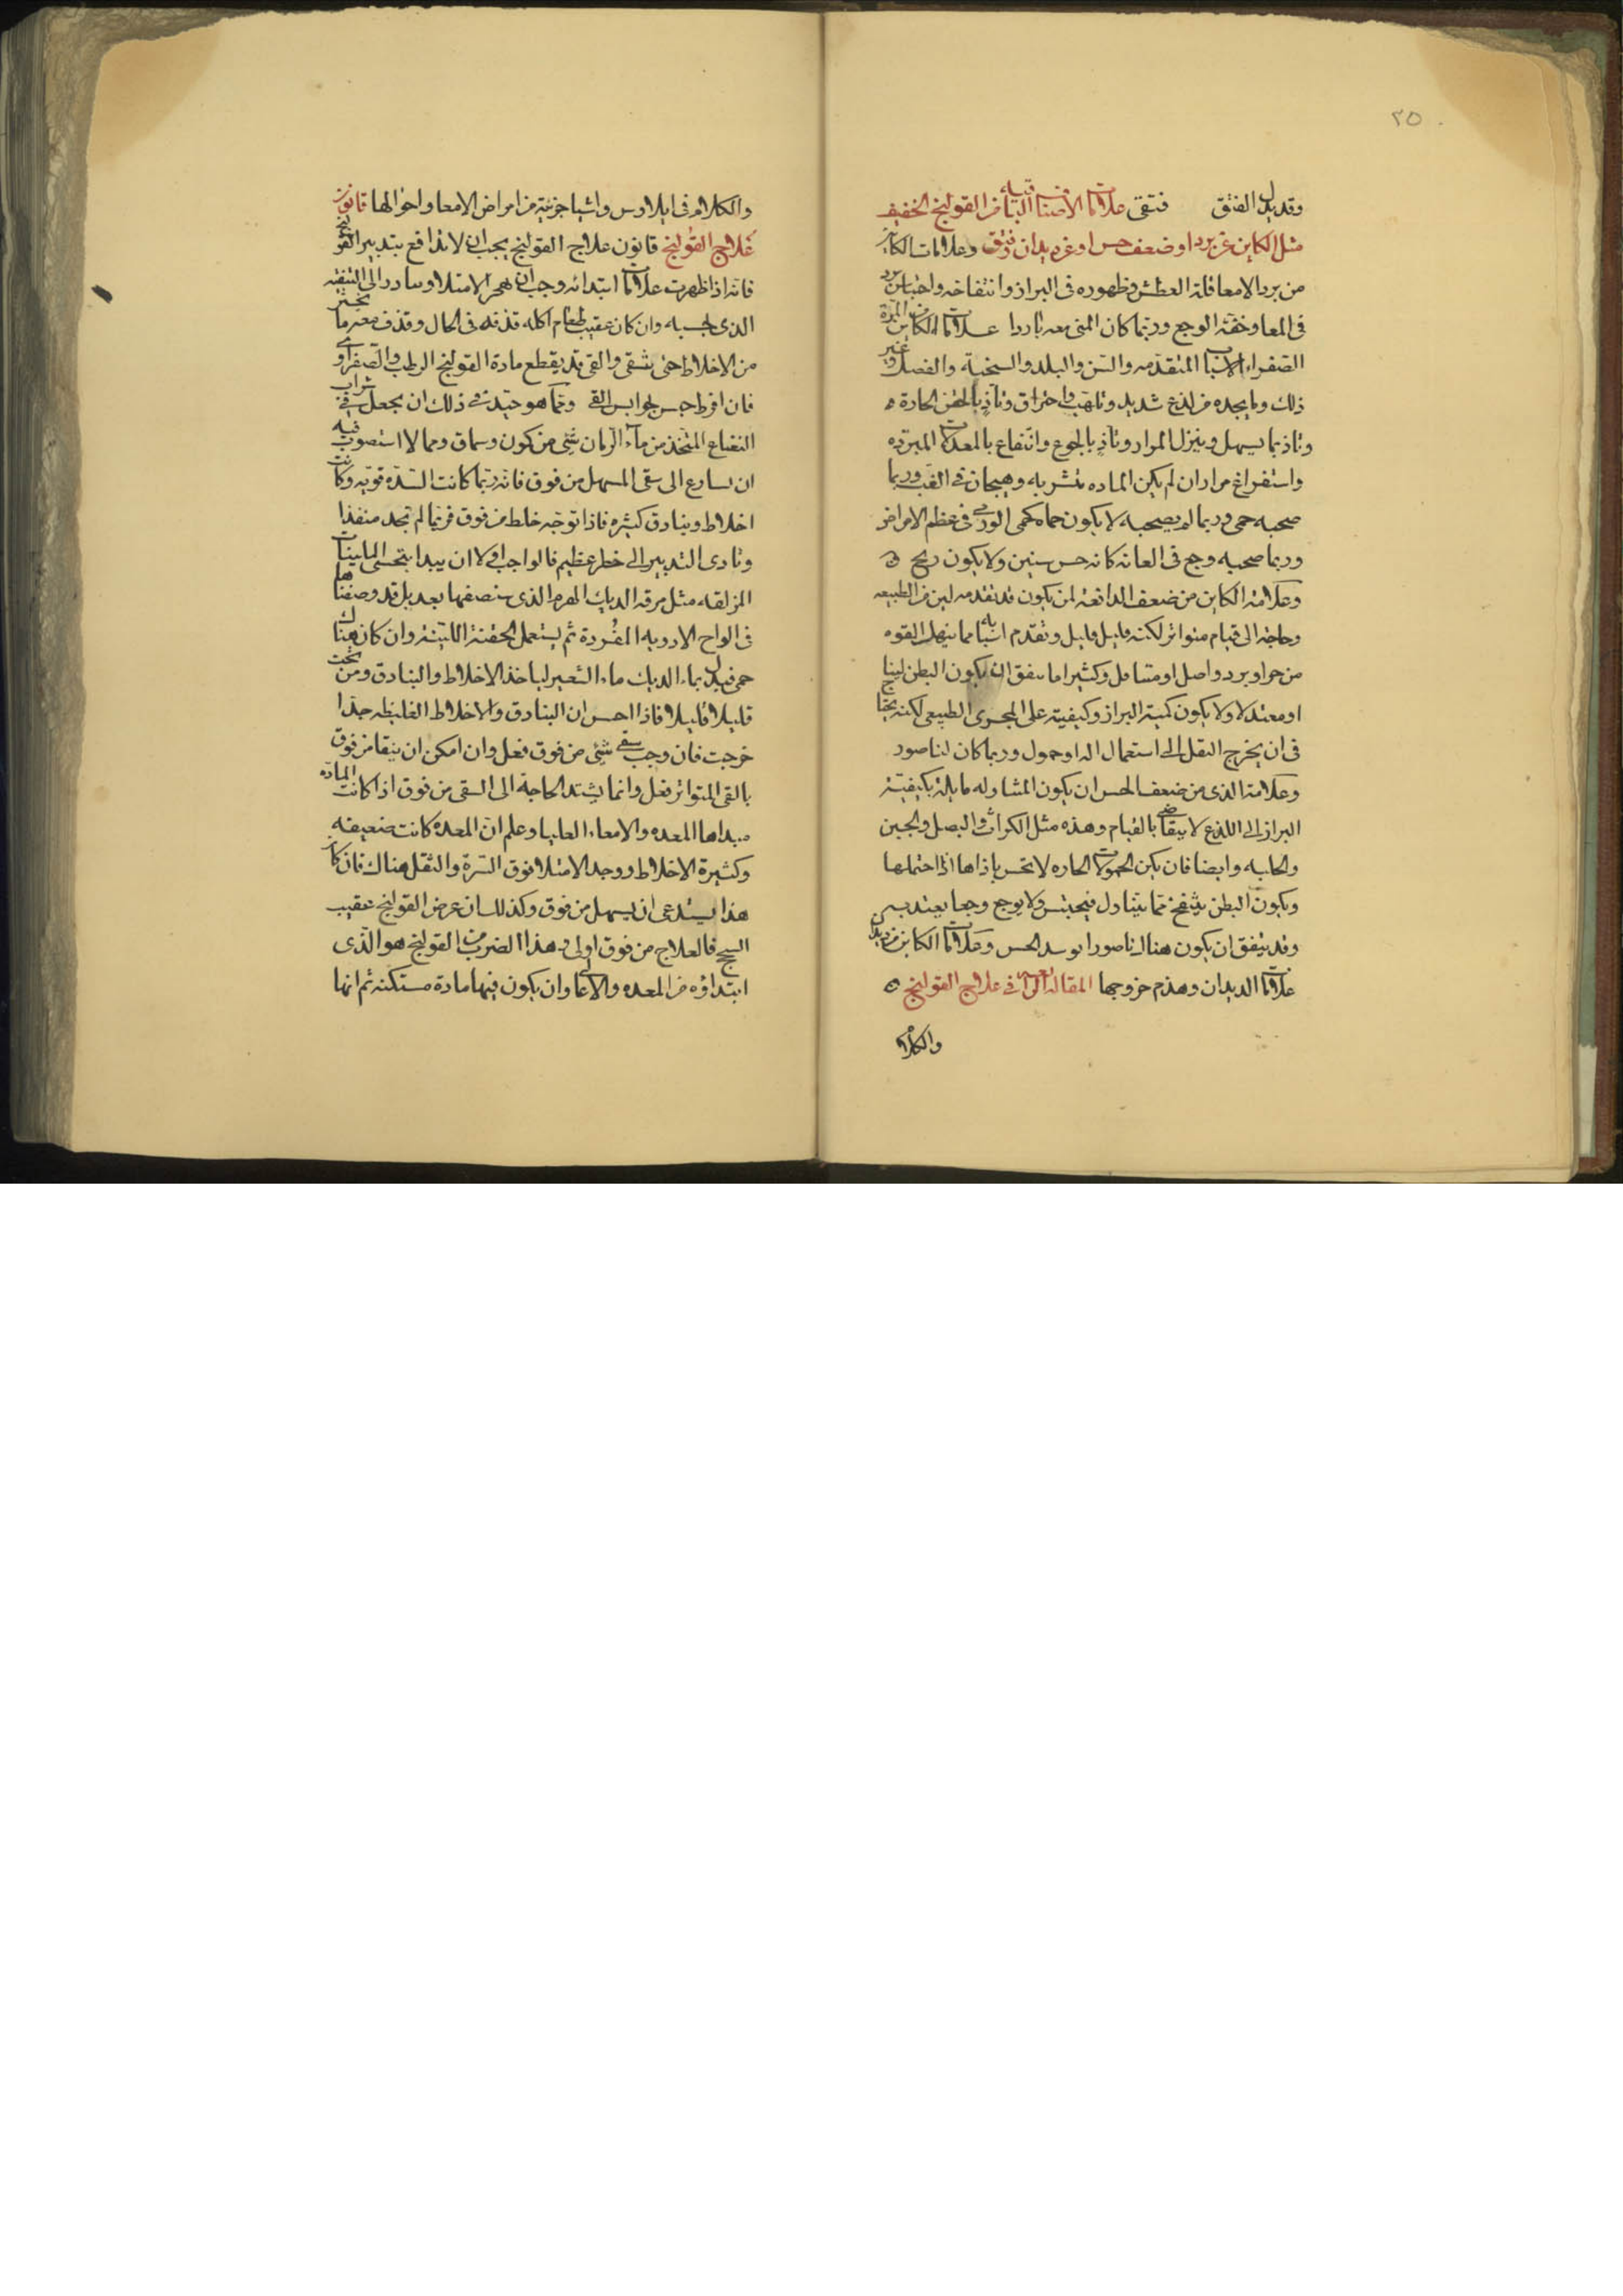 ٢٥
وقد يدل الفتق فتقى علامات الاصناف الباقيه من القولنج الخفيف
مثل الكاين عن برد او ضعف حس او عن ديدان وفتق وعلامات الكاين
من برد الامعا قلة العطش وظهوره فى البراز وانتفاخه واحتباس برد
فى المعا وخفة الوجع وربما كان المنى معه باردا علامات الكاين من المرة
الصفراء الاسباب المتقدمه والسن والبلد والسخنه والفصل وغير
ذلك وما يجده من لذع شديد وتلهب واحتراق وتاذ بالحقن الحادة
وتاذ بما يسهل وينزل المرار وتاذ بالجوع وانتفاع بالمعدلات المبرده
واستفراغ مرار ان لم يكن الماده متشربه وهيجان فى الغب وربما
صحبه حمى وربما لم يصحبه لا يكون حماه كحمى الورمى فى عظم الاعراض
وربما صحبه وجع فى العانه كانه حس سنين ولا يكون ريح
وعلامة الكاين من ضعف الدافعه لمن يكون قد تقدمه لين من الطبيعه
وحاجة الى قيام متواتر لكنه قليل قليل وتقدم اسباب مما ينهك القوه
من حر او برد واصل او متناول وكثيرا ما يتفق ان يكون البطن لينا
او معتدلا ولا يكون كمية البراز وكيفيته على المجرى الطبيعى لكنه يحتاج
فى ان يخرج الثفل الى استعمال اله او حمول وربما كان لناصور
وعلامة الذى من ضعف الحس ان يكون المتناوله مايلة بكيفيته
البراز الى اللذع لا يتقاضى بالقيام وهذه مثل الكراث والبصل والجبن
والحلبه وايضا فان يكن الحمولات الحاره لا تحس باذاها اذا احتملها
ويكون البطن ينتفخ مما يتناول فيحتبس ولا يوجع وجعا يعتد به
وقد يتفق ان يكون هناك ناصور افسد الحس وعلامات الكاين من ديدان
علامات الديدان وهذم خروجها المقالة الرابعة فى علاج القولنج
والكلام
والكلام فى ايلاوس واشيا جزئية من امراض الامعا واحوالها قانون
علاج القولنج قانون علاج القولنج يجب ان لا تدافع بتدبير القولنج
فانه اذا ظهرت علامات ابتدائه وجب ان يهجر الامتلا ويبادر الى التنقيه
الذى بحسبه وان كان عقيب طعام اكله قذفه فى الحال وقذف معه ما يختبر
من الاخلاط حتى يتنقى والقى قد يقطع مادة القولنج الرطب والصفراوى
فان افرط حبس بحوابس القى ومما هو جيد فى ذلك ان يجعل فى شراب
النعناع المتخذ من ماء الرمان شئ من كمون وسماق ومما لا استصوب فيه
ان يسارع الى سقى المسهل من فوق فانه ربما كانت السده قويه وكانت
اخلاط وبنادق كثيره فاذا توجه خلط من فوق فربما لم تجد منفذا
وتادى التدبير الى خطر عظيم فالواجب اولا ان يبدا بتحسى الملينات
المزلقه مثل مرقه الديك الهرم الذى سنصفها بعد بل قد وصفناها
فى الواح الادويه المفردة ثم يستعمل الحقنة اللينه وان كان هناك
حمى فبدل بماء الديك ماء الشعير ليا خذ الاخلاط والبنادق ومن تحت
قليلا قليلا فاذا احس ان البنادق والاخلاط الغليظه جدا
خرجت فان وجب سقى شئ من فوق فعل وان امكن ان ينقا من فوق
بالقى المتواتر فعل وانما يشتد الحاجة الى السقى من فوق اذا كانت المادة
مبداها المعده والامعاء العليا وعلم ان المعده كانت ضعيفه
وكثيرة الاخلاط ووجد الامتلا فوق السرة والثقل هناك فان كان
هذا يستدعى ان يسهل من فوق وكذلك ان عرض القولنج عقيب
السحج فالعلاج من فوق اولى وهذا الضرب من القولنج هو الذى
ابتداؤه من المعده والاعلى وان يكون فيهما مادة مستكنه ثم انها